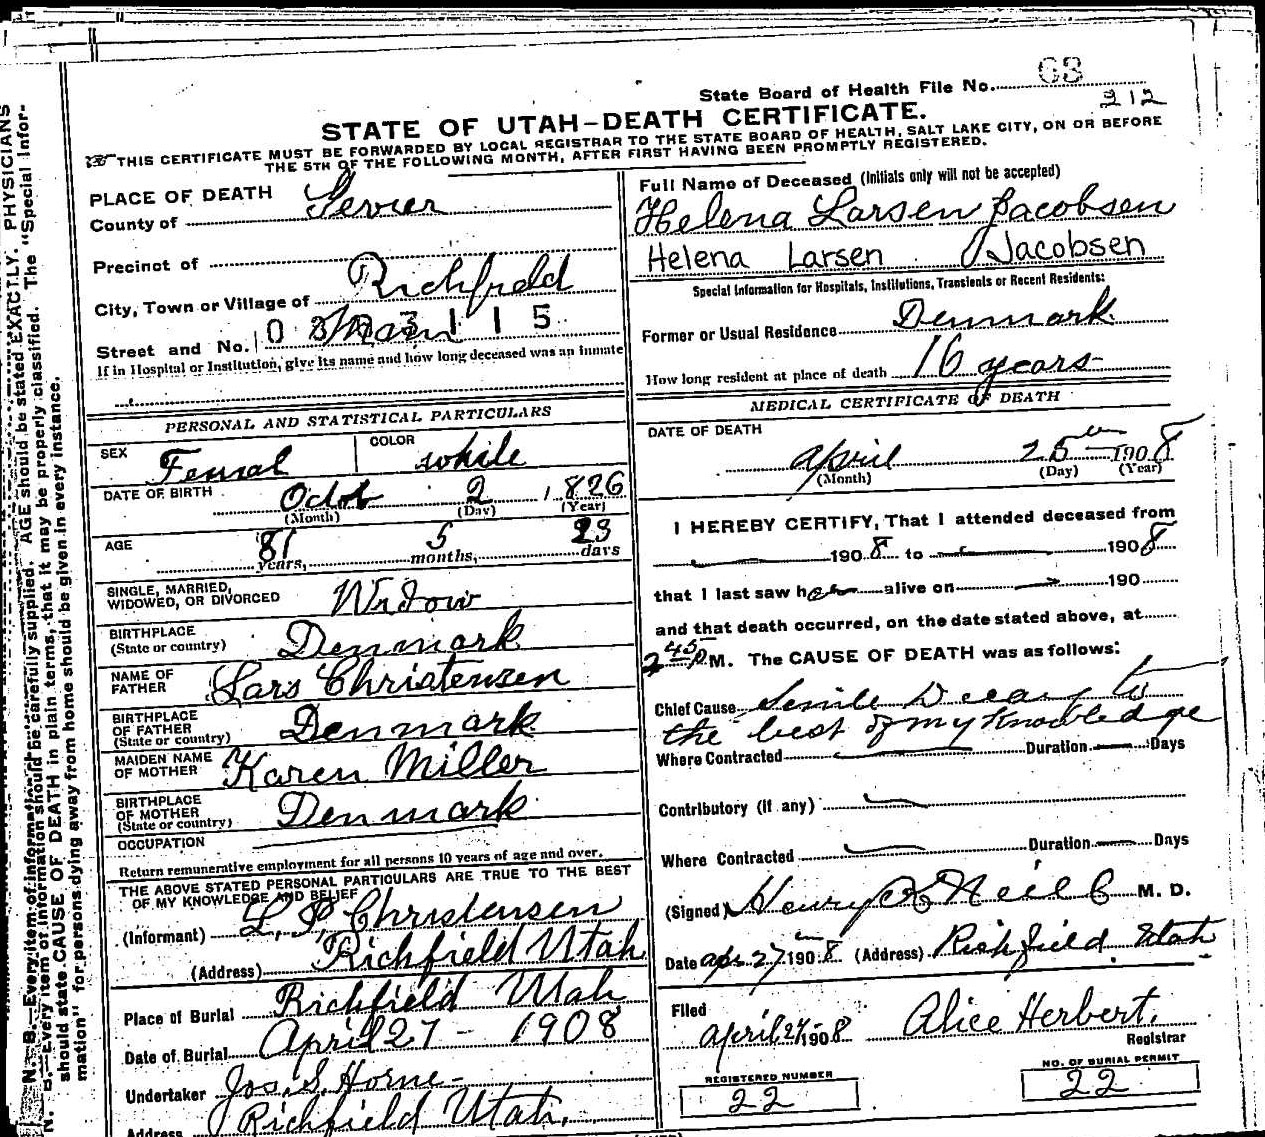 State Board of Health File No. 63
212
STATE OF UTAH-DEATH CERTIFICATE.
THIS CERTIFICATE MUST BE FORWARDED BY LOCAL REGISTRAR TO THE STATE BOARD OF HEALTH, SALT LAKE CITY, ON OR BEFORE
THE 5TH OF THE FOLLOWING MONTH, AFTER FIRST HAVING BEEN PROMPTLY REGISTERED.
PLACE OF DEATH
County of Sevier
Precinct of
City, Town or Village of Richfield
Street and No. Main
If in Hospital or Institution, give its name and how long deceased was an inmate
PERSONAL AND STATISTICAL PARTICULARS
SEX Femal COLOR white
DATE OF BIRTH Octob 2 1826
(Month) (Day) (Year)
AGE 81 years, 5 months, 23 days
SINGLE, MARRIED,
WIDOWED, OR DIVORCED Widow
BIRTHPLACE
(State or country) Denmark
NAME OF
FATHER Lars Christensen
BIRTHPLACE
OF FATHER
(State or country) Denmark
MAIDEN NAME
OF MOTHER Karen Miller
BIRTHPLACE
OF MOTHER
(State or country) Denmark
OCCUPATION
Return remunerative employment for all persons 10 years of age and over.
THE ABOVE STATED PERSONAL PARTICULARS ARE TRUE TO THE BEST
OF MY KNOWLEDGE AND BELIEF
(Informant) L. P. Christensen
(Address) Richfield Utah
Place of Burial Richfield Utah
Date of Burial April 27 - 1908
Undertaker Jos. S. Horne
Address Richfield Utah.
Full Name of Deceased (Initials only will not be accepted)
Helena Larsen Jacobsen
Helena Larsen Jacobsen
Special Information for Hospitals, Institutions, Transients or Recent Residents:
Former or Usual Residence Denmark
How long resident at place of death 16 years
MEDICAL CERTIFICATE OF DEATH
DATE OF DEATH
April 25th 1908
(Month) (Day) (Year)
I HEREBY CERTIFY, That I attended deceased from
1908 to 1908
that I last saw her alive on 190
and that death occurred, on the date stated above, at
2 45 P.M. The CAUSE OF DEATH was as follows:
Chief Cause Senile Decay to
the best of my knowledge
Where Contracted Duration Days
Contributory (if any)
Where Contracted Duration Days
(Signed) Henry M. D.
Date Apr 27 1908 (Address) Richfield Utah
Filed
April 27 1908 Alice Herbert,
Registrar
REGISTERED NUMBER
22
NO. OF BURIAL PERMIT
22
N. B.—Every item of information should be carefully supplied. AGE should be stated EXACTLY. PHYSICIANS
should state CAUSE OF DEATH in plain terms, that it may be properly classified. The "Special Infor-
mation" for persons dying away from home should be given in every instance.